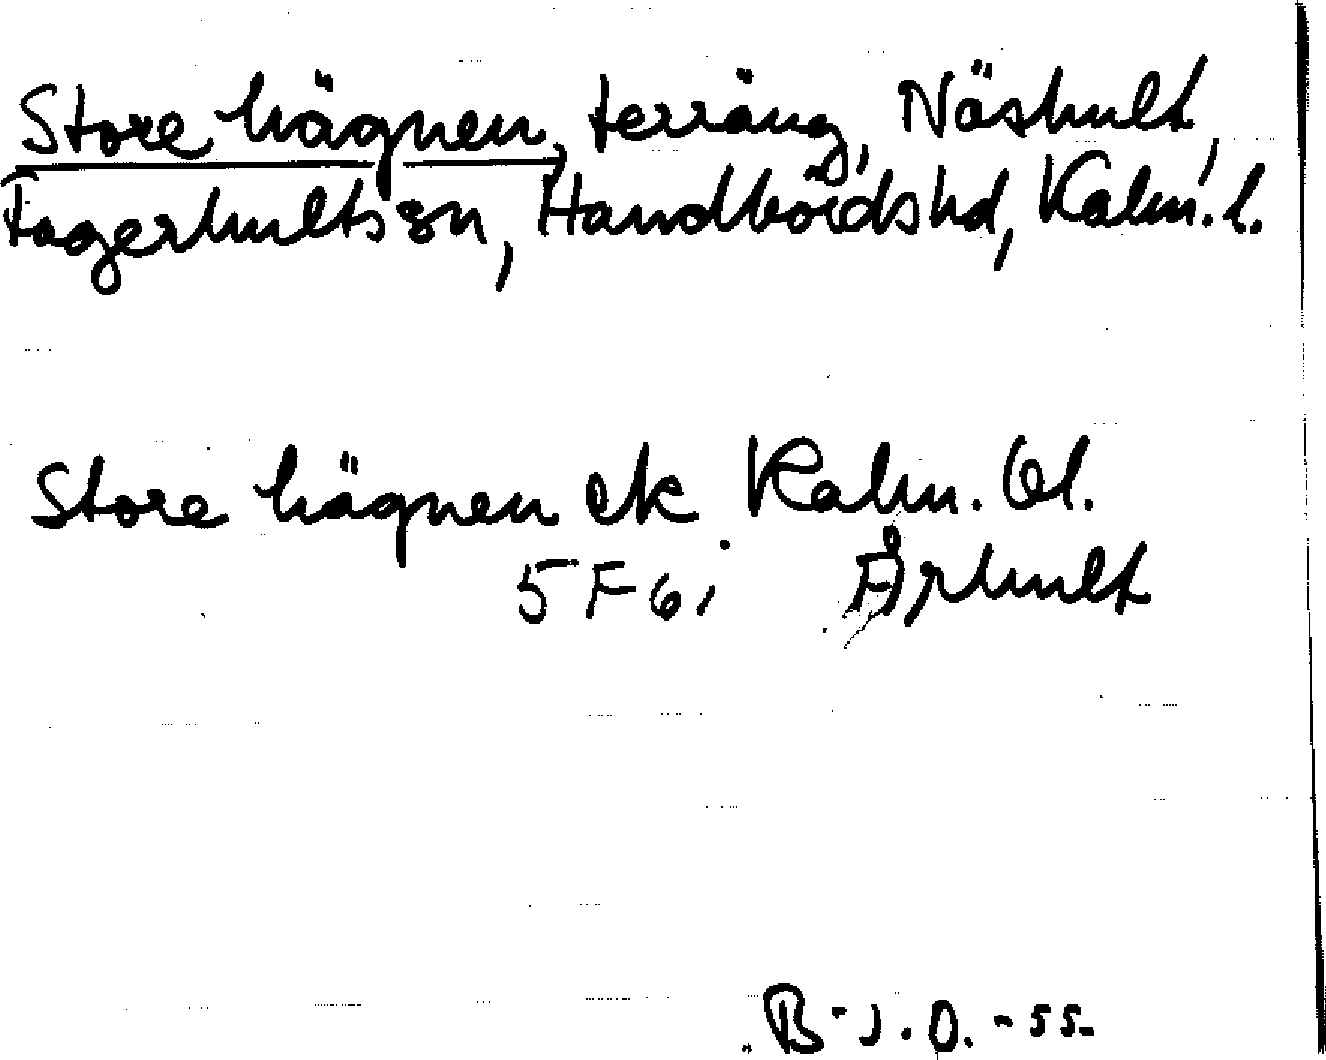 Store hägnen, terräng, Näshult,
Fagerhults sn, Handbördshd, Kalm. l.
Store hägnen ek Kalm. Öl.
5 F 6 i Århult
B-J.O. -55-